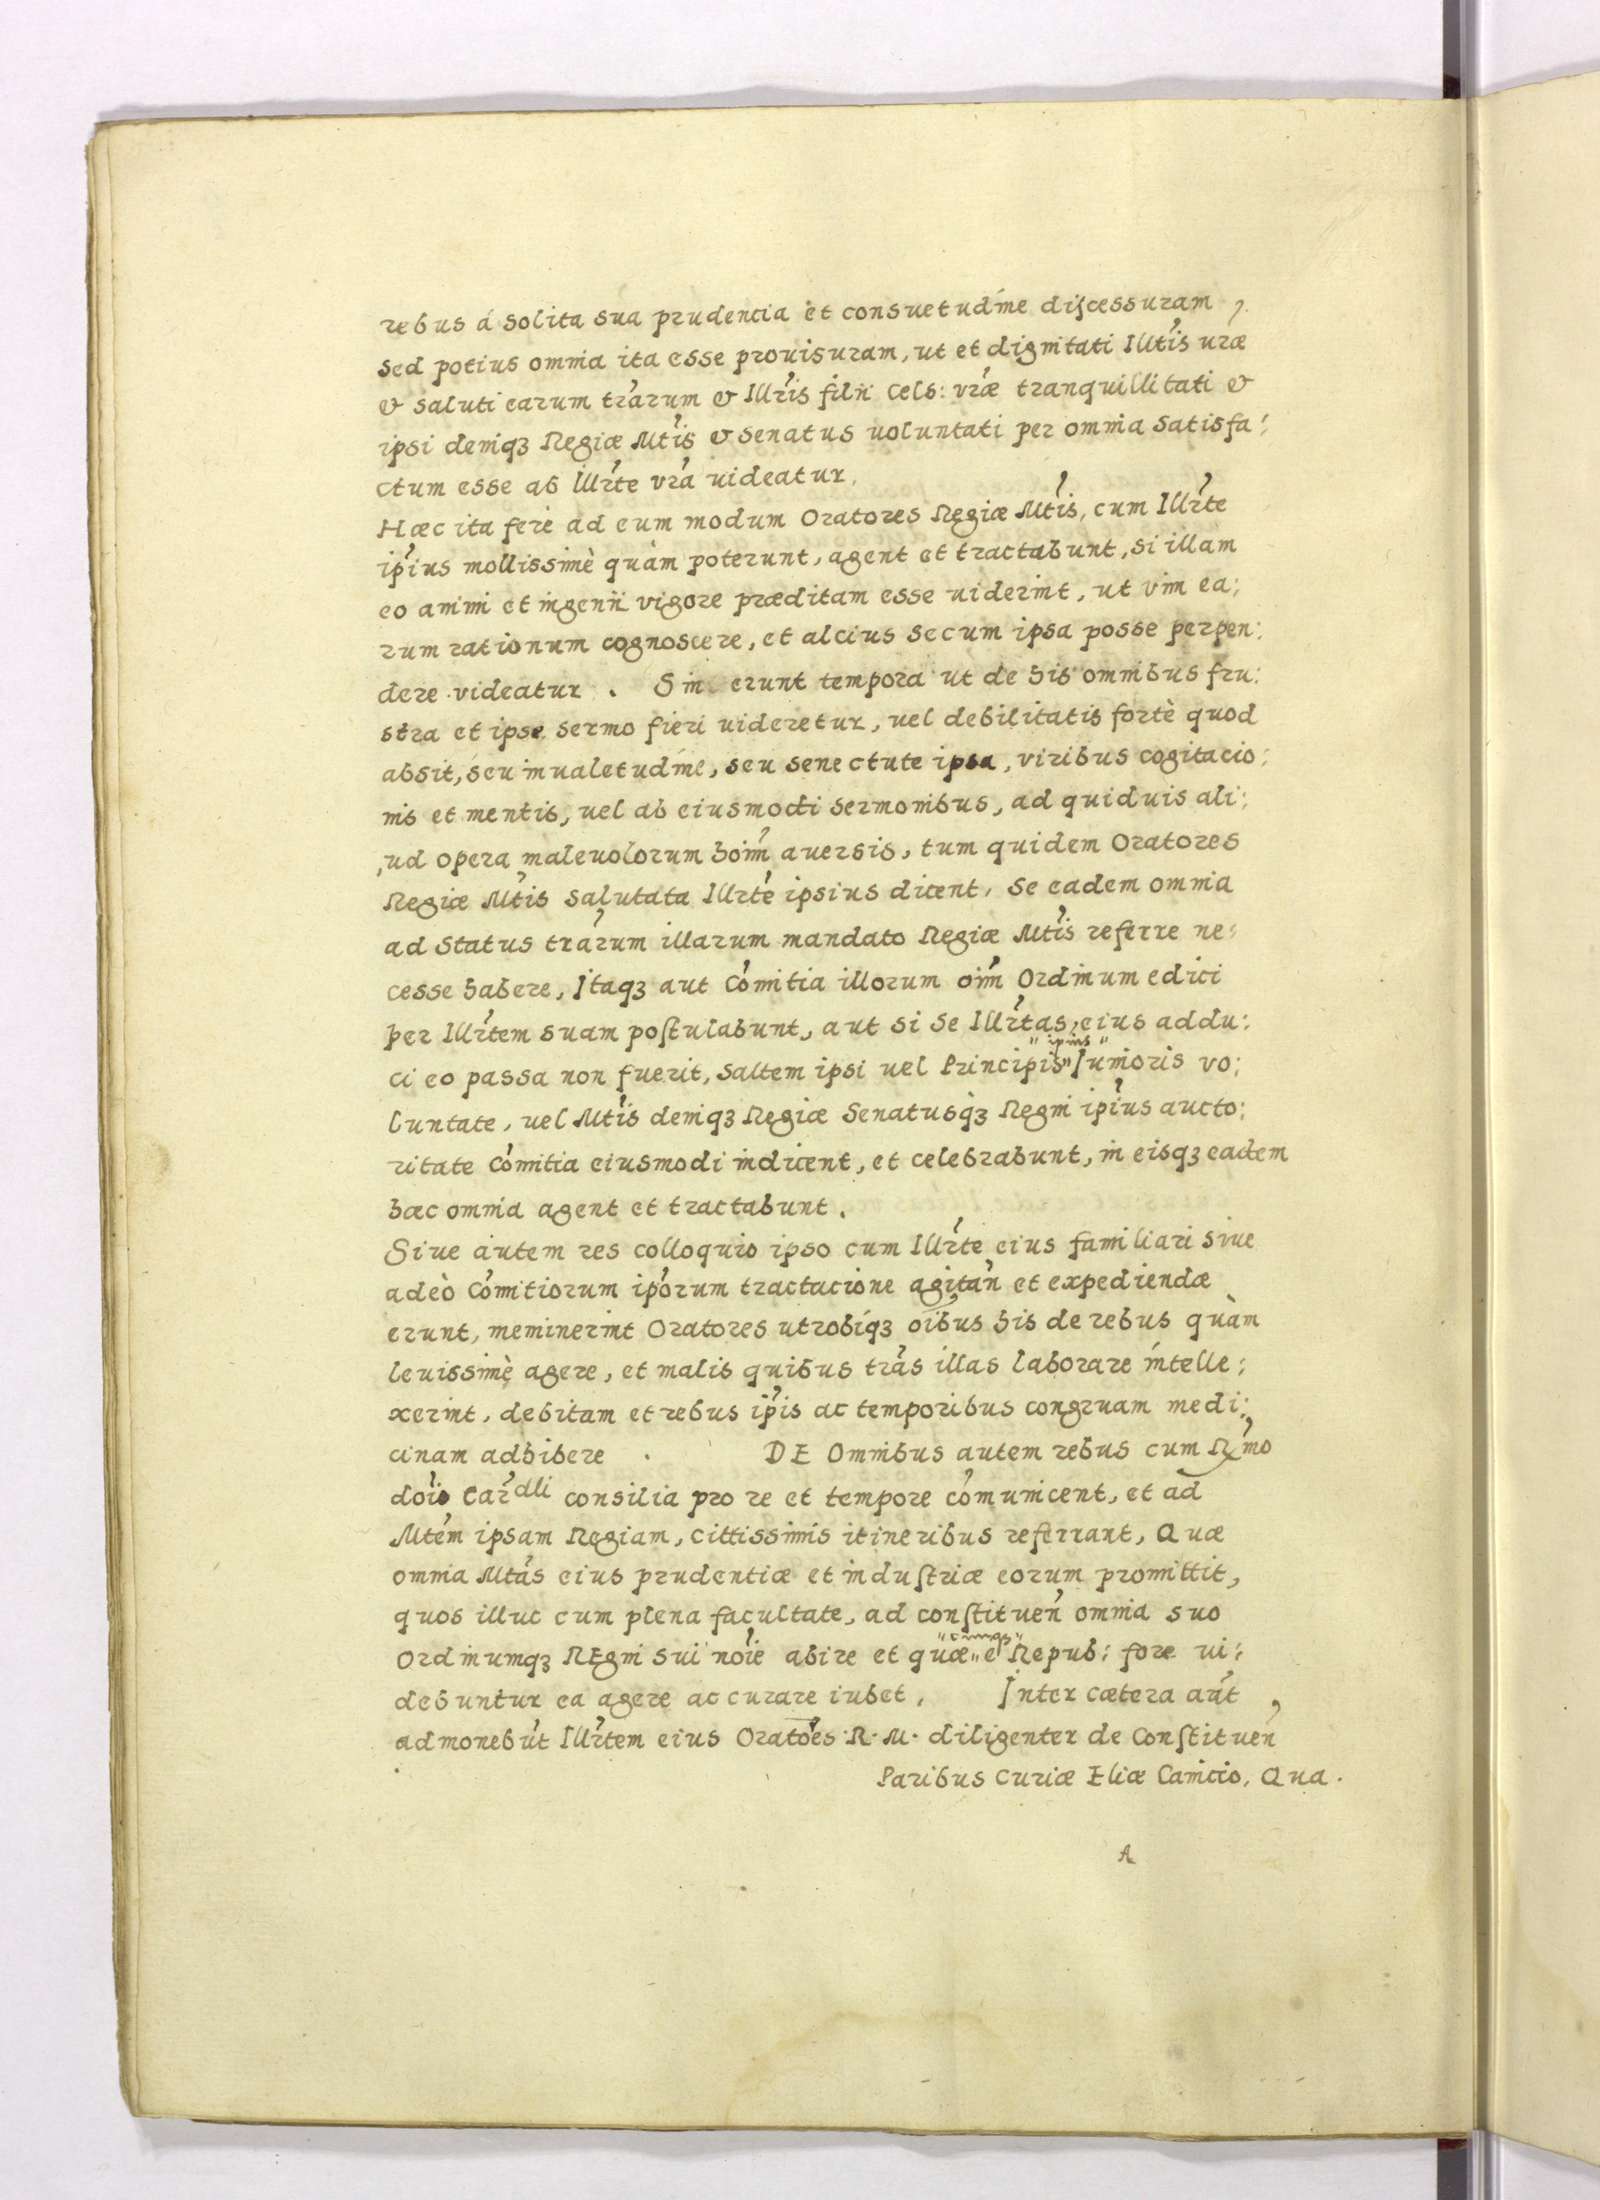 rebus á solita sua prudencia et consuetudine discessuram,
sed potius omnia ita esse prouisuram, ut et dignitati Illtis uræ
& saluti earum trarum & Illris filii Cels: vræ tranquillitati &
ipsi deniqȝ Regiæ Mtis & senatus uoluntati per omnia satisfa:
ctum esse ab Illrte vra uideatur.
Hæc ita ferè ad eum modum Oratores Regiæ Mtis, cum Illrte
ipius mollissimè quàm poterunt, agent et tractabunt, si illam
eo animi et ingenii vigore præditam esse uiderint, ut vim ea:
rum rationum cognoscere, et alcius secum ipsa posse perpen:
dere videatur. Sin erunt tempora ut de his omnibus fru:
stra et ipse sermo fieri uideretur, uel debilitatis fortè quod
absit, seu inualetudine, seu senectute ipsa, viribus cogitacio:
nis et mentis, uel ab eiusmodi sermonibus, ad quiduis ali:
ud opera maleuolorum hoim auersis, tum quidem Oratores
Regiæ Mtis salutata Illrte ipsius dicent, se eadem omnia
ad Status trarum illarum mandato Regiæ Mtis referre ne:
cesse habere, Itaqȝ aut Comitia illorum oim Ordinum edici
per Illrtem suam postulabunt, aut si se Illrtas eius addu:
ci eo passa non fuerit, saltem ipsi uel Principis "ipius" Iunioris vo:
luntate, uel Mtis deniqȝ Regiæ Senatusqȝ Regni ipius aucto:
ritate Comitia eiusmodi indicent, et celebrabunt, in eisqȝ eadem
hæc omnia agent et tractabunt.
Siue autem res colloquio ipso cum Illrte eius familiari siue
adeò Comitiorum iporum tractacione agitan et expediendæ
erunt, meminerint Oratores utrobiqȝ oibus his de rebus quàm
leuissimè agere, et malis quibus tras illas laborare intelle:
xerint, debitam et rebus ipis ac temporibus congruam medi:
cinam adhibere. DE Omnibus autem rebus cum Rmo
doio Cardli consilia pro re et tempore comunicent, et ad
Mtem ipsam Regiam, cittissimis itineribus referrant, Quæ
omnia Mtas eius prudentiæ et industriæ eorum promittit,
quos illuc cum plena facultate, ad constituen omnia suo
Ordinumqȝ REgni sui noie abire et quæ e Repub: fore ui:
debuntur ea agere ac curare iubet. Inter cætera aut
admonebut Illrtem eius Oratoes R. M. diligenter de Constituen
Paribus Curiæ Eliæ Camicio, Qua.